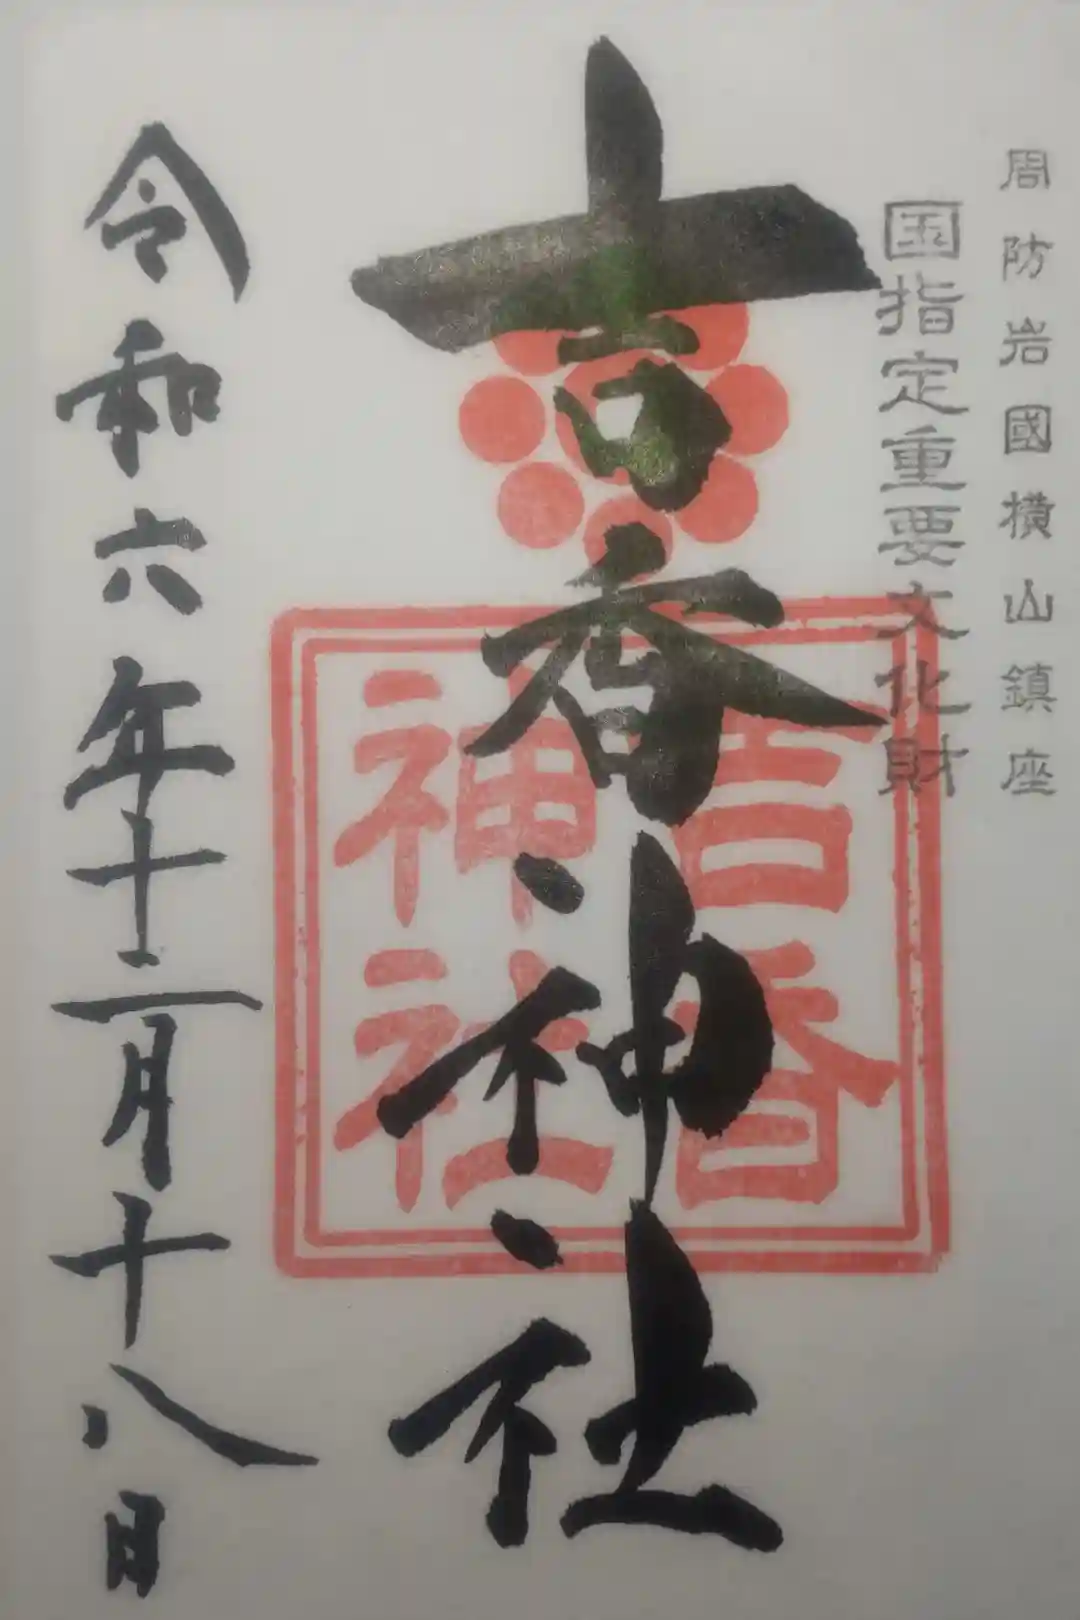 周防岩國横山鎮座
国指定重要文化財
吉香神社
吉香
神社
令和六年十二月十八日